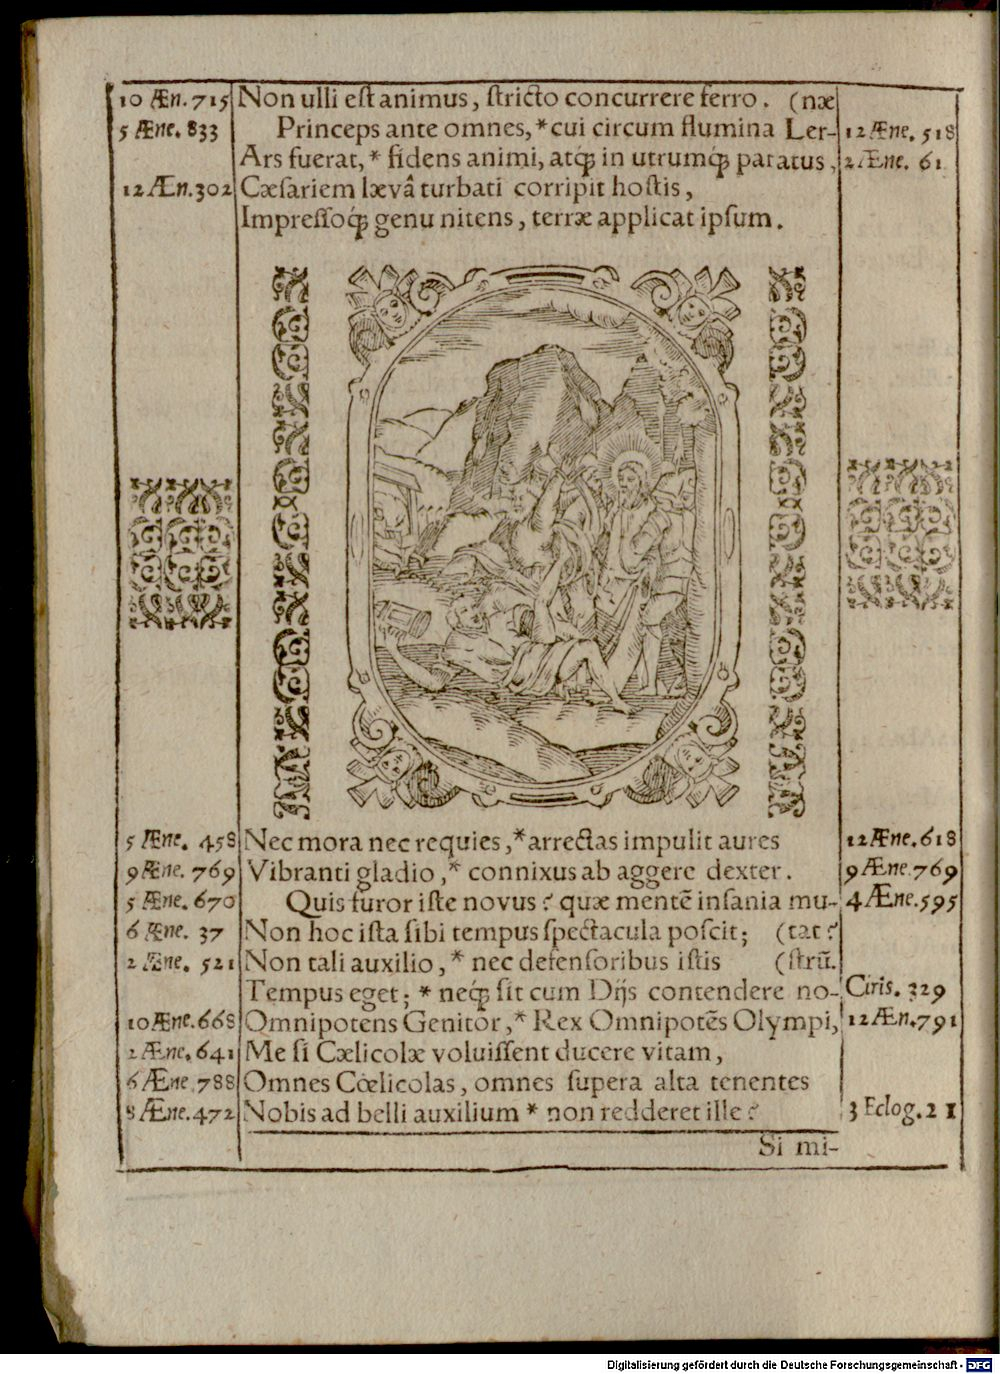 10 Æn. 715 Non ulli est animus, stricto concurrere ferro. (næ
5 Æne. 833 Princeps ante omnes, * cui circum flumina Ler- 12 Æne. 518
Ars fuerat, * fidens animi, atq́; in utrumq́; paratus, 2 Æne. 61
12 Æn. 302 Cæsariem lævâ turbati corripit hostis,
Impressoq́; genu nitens, terræ applicat ipsum.
5 Æne. 458 Nec mora nec requies, * arrectas impulit aures 12 Æne. 618
9 Æne. 769 Vibranti gladio, * connixus ab aggere dexter. 9 Æne. 769
5 Æne. 670 Quis furor iste novus? quæ mentē insania mu- 4 Æne. 595
6 Æne. 37 Non hoc ista sibi tempus spectacula poscit; (tat?
2 Æne. 521 Non tali auxilio, * nec defensoribus istis (strū.
Tempus eget; * neq́; sit cum Dijs contendere no- Ciris. 329
10 Æne. 668 Omnipotens Genitor, * Rex Omnipotēs Olympi, 12 Æn. 791
2 Æne. 641 Me si Cælicolæ voluissent ducere vitam,
6 Æne 788 Omnes Cœlicolas, omnes supera alta tenentes
8 Æne. 472 Nobis ad belli auxilium * non redderet ille? 3 Eclog. 21
Si mi-
Digitalisierung gefördert durch die Deutsche Forschungsgemeinschaft - DFG